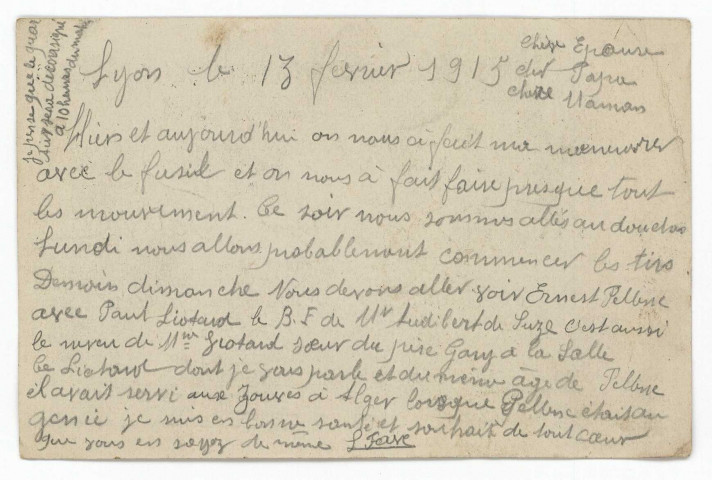 Lyon le 13 fevrier 1915
chère Epouse
cher Papa
chère Maman
Hier et aujourd'hui on nous à fait manœuvrer
avec le fusil et on nous à fait faire presque tout
les mouvement. Ce soir nous sommes allés au douches
Lundi nous allons probablement commencer les tirs
Demain dimanche Nous devons aller voir Ernest Pellene
avec Paul Liotard le B.F de Mr Audibert de Suze c'est aussi
le neveu de Mme Liotard sœur du père Gary à la Salle
Ce Liotard dont je vous parle et du même âge de Pellene
il avait servi aux Zouaves à Alger lorsque Pellene était au
genie je suis en bonne santé et souhaite de tout cœur
que vous en soyez de même L Fave
Je pense que le quar
tier sera déconsigné
à 10 heures du matin